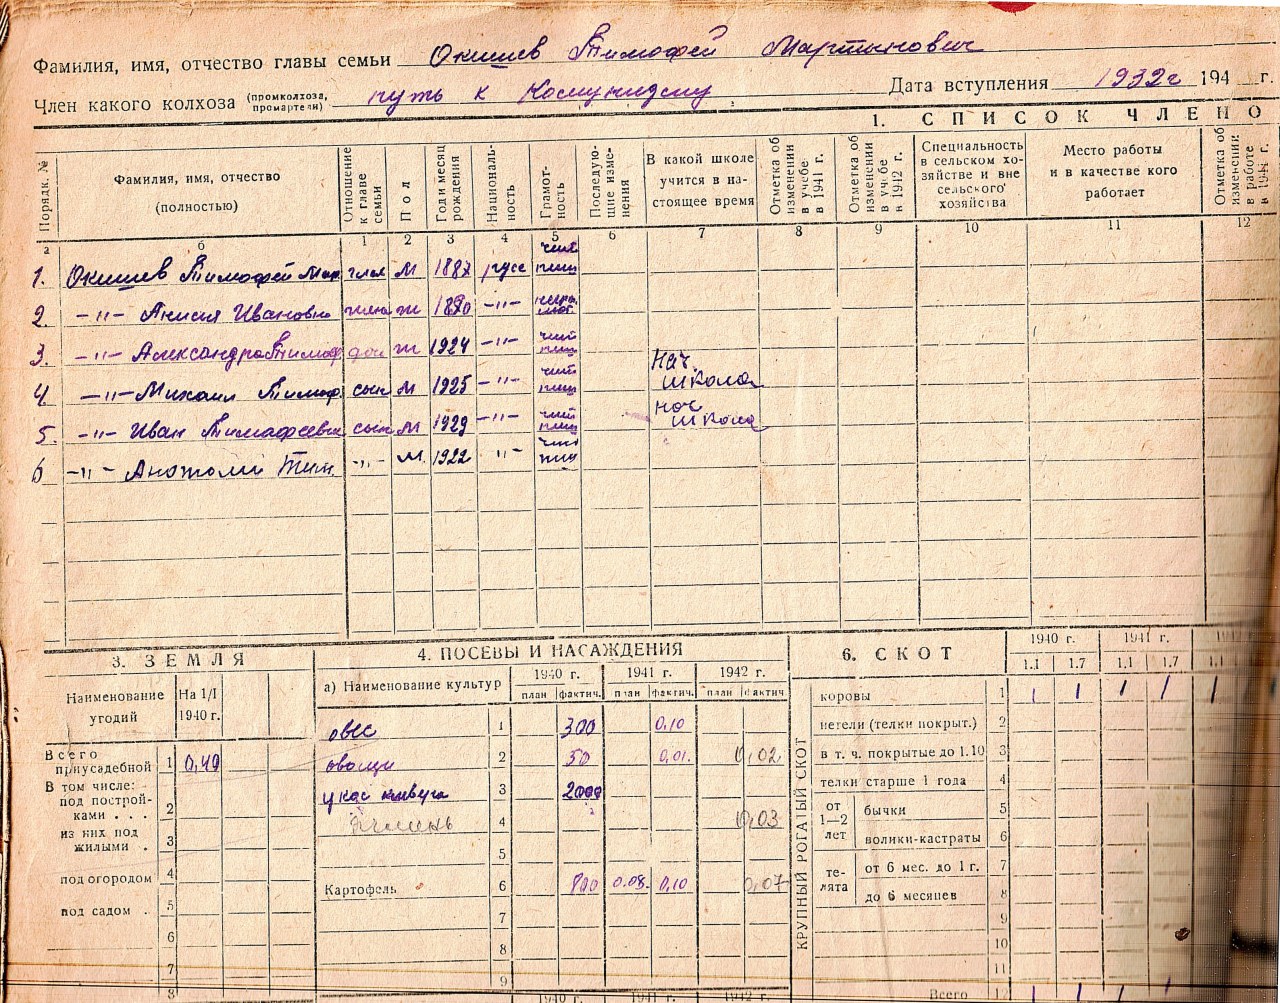 Фамилия, имя, отчество главы семьи Окишев Тимофей Мартынович
Член какого колхоза (промколхоза, промартели) путь к Коммунизму Дата вступления 1932г 194 г.
1. СПИСОК ЧЛЕНО
Порядк. №
Фамилия, имя, отчество (полностью)
Отношение к главе семьи
Пол
Год и месяц рождения
Националь-ность
Грамот-ность
Последую-щие изме-нения
В какой школе учится в на-стоящее время
Отметка об изменении в учебе в 1941 г.
Отметка об изменении в учебе в 1942 г.
Специальность в сельском хо-зяйстве и вне сельского хозяйства
Место работы и в качестве кого работает
Отметка об изменении в работе в 1941 г.
а б 1 2 3 4 5 6 7 8 9 10 11 12
1. Окишев Тимофей Мар. глав М 1887 русс чит пиш
2. -"- Анисия Ивановна жена ж 1890 -"-
3. -"- Александра Тимоф. доч ж 1924 -"- чит пиш
4. -"- Михаил Тимоф. сын М 1925 -"- чит пиш Нач. школа
5. -"- Иван Тимофеевич сын М 1929 -"- чит пиш нач школа
6 -"- Анатолий Тим. -"- М. 1922 -"- чит пиш
3. ЗЕМЛЯ
Наименование угодий На 1/I 1940 г.
Всего приусадебной 1 0,40
В том числе:
под построй-ками . . . 2
из них под жилыми . 3
под огородом 4
под садом . 5
6
7
8
4. ПОСЕВЫ И НАСАЖДЕНИЯ
а) Наименование культур 1940 г. 1941 г. 1942 г.
план фактич. план фактич. план фактич
овес 1 300 0,10
овощи 2 50 0,01. 0,02
3 2000
Ячмень 4 0,03
5
Картофель 6 800 0.08. 0,10 0,07
7
8
9
1940 г. 1941 г. 1942 г.
6. СКОТ
1940 г. 1941 г.
1.1 1.7 1.1 1.7 1.1
КРУПНЫЙ РОГАТЫЙ СКОТ
коровы 1 1 1 1 1 1
нетели (телки покрыт.) 2
в т. ч. покрытые до 1.10 3
телки старше 1 года 4
от 1—2 лет
бычки 5
волики-кастраты 6
те-лята
от 6 мес. до 1 г. 7
до 6 месяцев 8
9
10
11
Всего 12 1 1 1 1